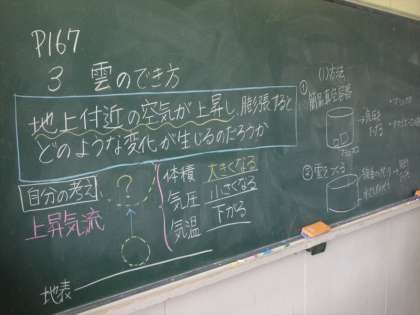 P167
3 雲のでき方
地上付近の空気が上昇し、膨張すると
どのような変化が生じるのだろうか
自分の考え
?
上昇気流
体積 大きくなる
気圧 小さくなる
気温 下がる
地表
(1)方法
① 簡易真空容器
② 雲をつくる